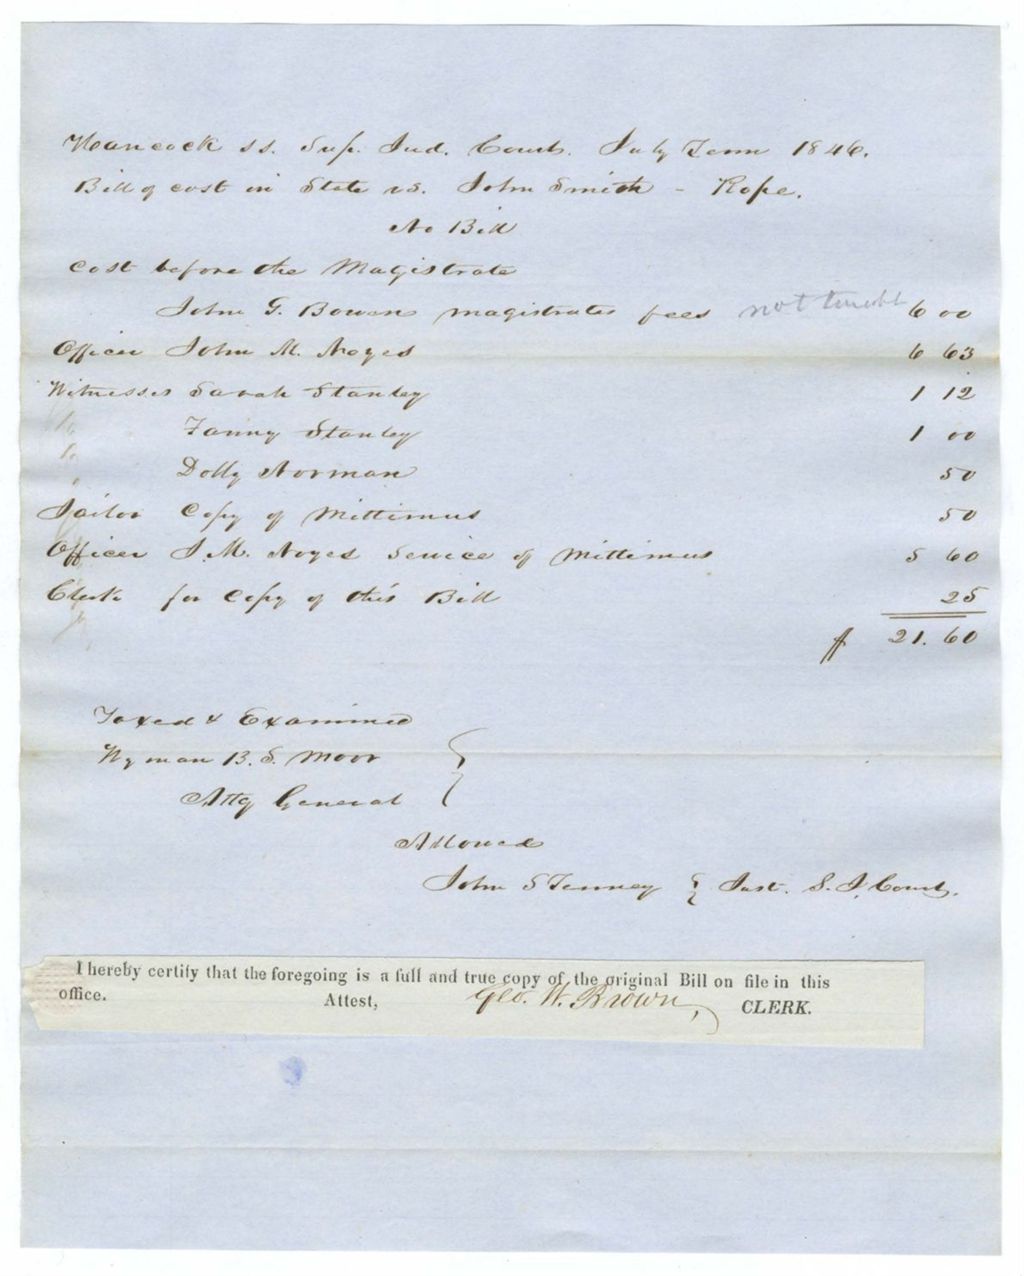 Hancock ss. Sup. Jud. Court. July Term 1846.
Bill of cost in State vs. John Smith - Rape.
No Bill
Cost before the Magistrate
John G. Bowen magistrates fees not 6 00
Officer John M. Noyes 6 63
Witnesses Sarah Stanley 1 12
Fanny Stanley 1 00
Dolly Norman 50
Jailor Copy of Mittimus 50
Officer J. M. Noyes Service of Mittimus 5 60
Clerk for Copy of this Bill 25
$ 21.60
Taxed & Examined
Wyman B. S. Moor
Atty General
Allowed
John S Tenney } Just. S. J. Court.
I hereby certify that the foregoing is a full and true copy of the original Bill on file in this
office. Attest, Geo. W. Brown, CLERK.